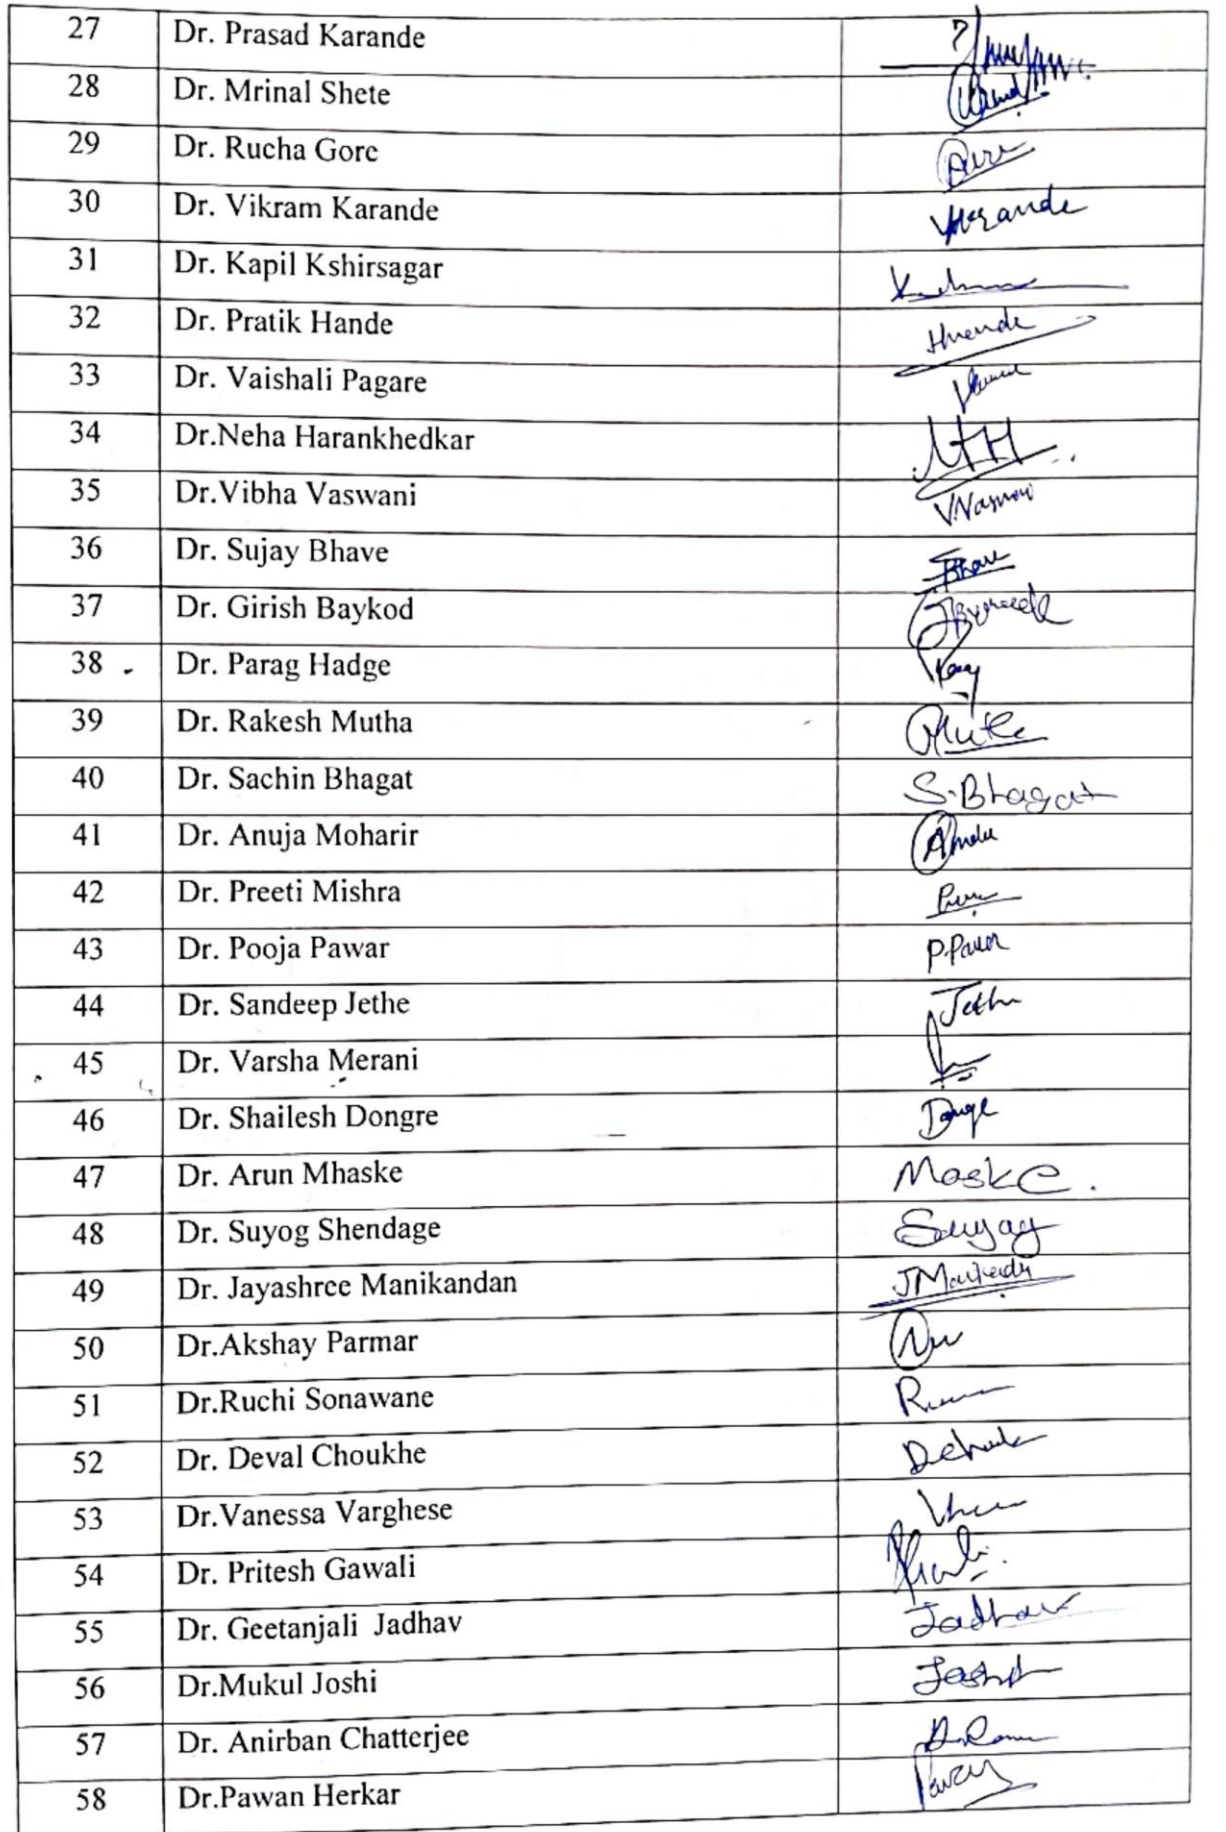 27 Dr. Prasad Karande
28 Dr. Mrinal Shete
29 Dr. Rucha Gore
30 Dr. Vikram Karande VKarande
31 Dr. Kapil Kshirsagar
32 Dr. Pratik Hande
33 Dr. Vaishali Pagare
34 Dr.Neha Harankhedkar NH
35 Dr.Vibha Vaswani
36 Dr. Sujay Bhave
37 Dr. Girish Baykod
38 Dr. Parag Hadge
39 Dr. Rakesh Mutha
40 Dr. Sachin Bhagat S.Bhagat
41 Dr. Anuja Moharir
42 Dr. Preeti Mishra
43 Dr. Pooja Pawar P.Pawar
44 Dr. Sandeep Jethe
45 Dr. Varsha Merani
46 Dr. Shailesh Dongre
47 Dr. Arun Mhaske Maske.
48 Dr. Suyog Shendage Suyog
49 Dr. Jayashree Manikandan
50 Dr.Akshay Parmar
51 Dr.Ruchi Sonawane
52 Dr. Deval Choukhe
53 Dr.Vanessa Varghese
54 Dr. Pritesh Gawali
55 Dr. Geetanjali Jadhav Jadhav
56 Dr.Mukul Joshi Joshi
57 Dr. Anirban Chatterjee
58 Dr.Pawan Herkar